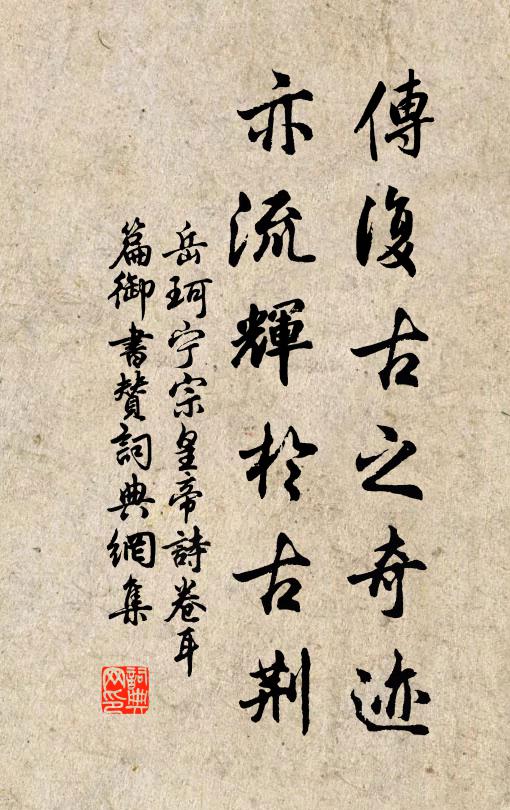 傳復古之奇迹
亦流輝於古荆
岳珂宁宗皇帝詩卷耳
篇御書贊詞典網集
詞典
网印